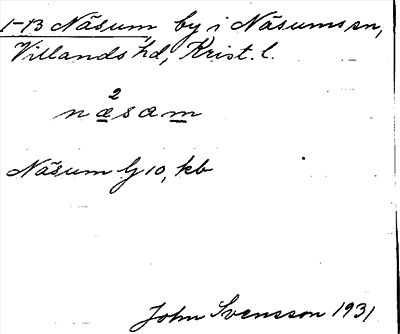 1-13 Näsum by i Näsums sn,
Villands hd, Krist. l.
2
næsam
Näsum G 10, kb
John Svensson 1931